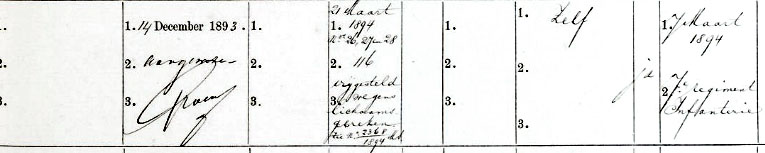 1.
2.
3.
1. 14 December 1893.
2. Aangewezen
3.
1.
2.
3.
21 Maart
1. 1894
No 26, 27 en 28
2. 116
vrijgesteld
3. wegens
lichaams
gebreken
zie No 2368
1894
1.
2.
3.
1. Zelf
2.
3.
ja
1. 7 Maart
1894
2. 7e regiment
Infanterie